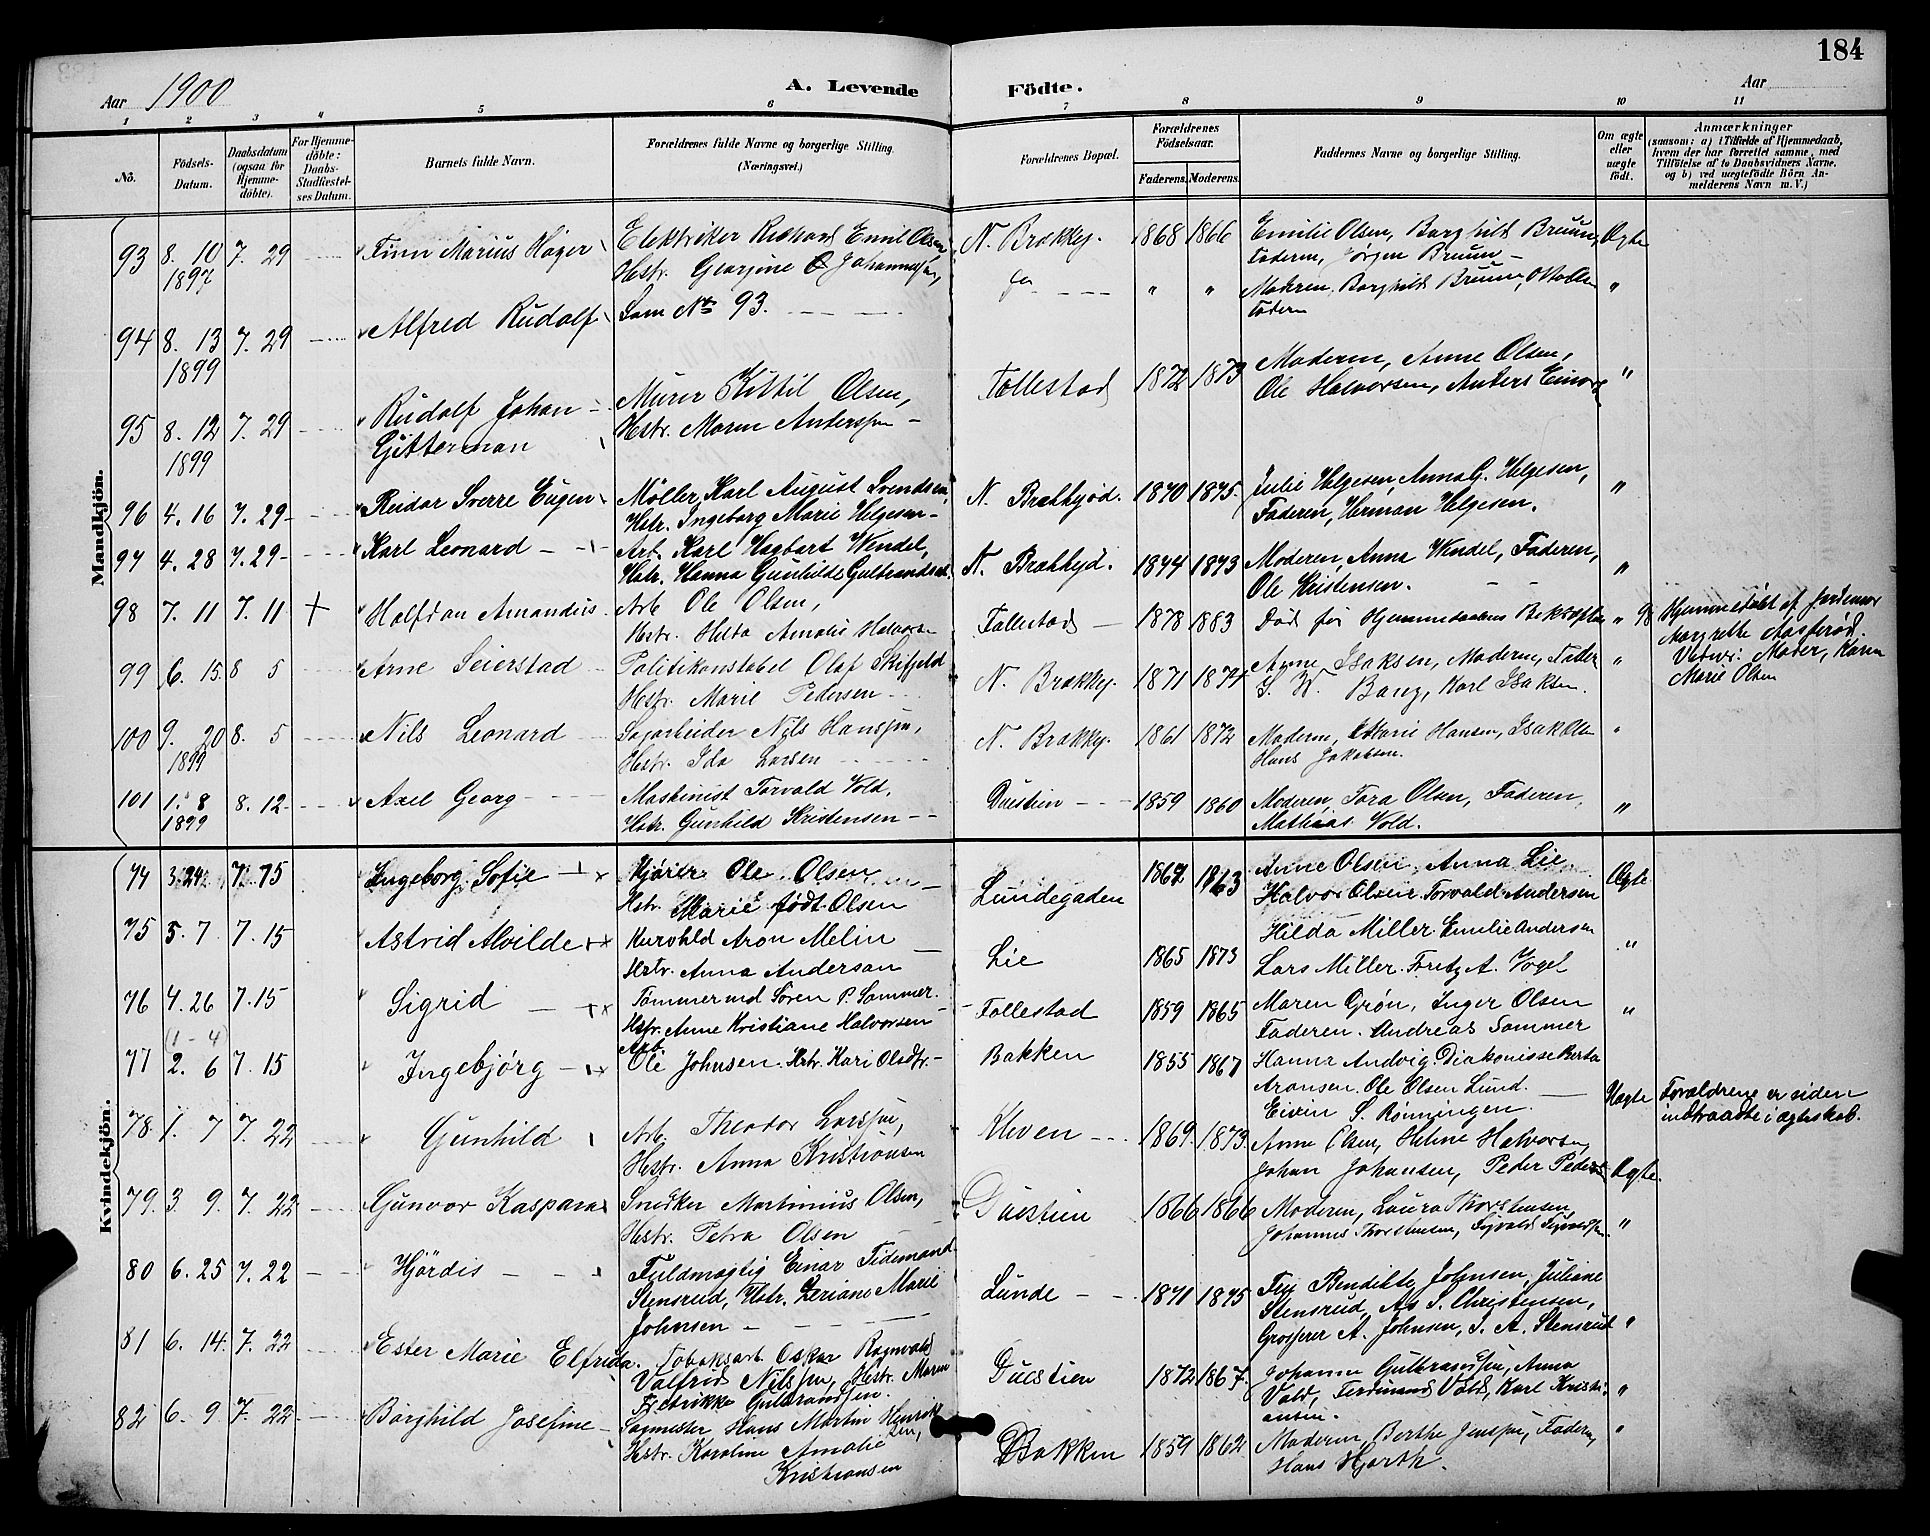 184
Aar 1900
A. Levende Födte.
Aar
1 2 3 4 5 6 7 8 9 10 11
No.
Födsels-Datum.
Daabsdatum (ogsaa for Hjemmedöbte).
For Hjemmedöbte: Daabs-Stadfæstelses Datum.
Barnets fulde Navn.
Forældrenes fulde Navne og borgerlige Stilling. (Næringsvei.)
Forældrenes Bopæl.
Forældrenes Födselsaar.
Faderens. Moderens.
Faddernes Navne og borgerlige Stilling.
Om ægte eller uægte födt.
Anmærkninger
(saasom: a) i Tilfælde af Hjemmedaab, hvem der har forrettet samme, med Tilföielse af to Daabsvidners Navne, og b) ved uægtefödte Börn Anmelderens Navn m. V.)
Mandkjön.
93 8. 10 1897 7. 29 Finn Marius Høger Elektriker Richard Emil Olsen, Hstr. Georgine O Johannessen, N. Brækky. 1868 1866 Emilie Olsen, Borghild Bruun, Faderen, Jørgen Bruun - Ægte
94 8. 13 1899 7. 29 Alfred Rudolf Som No 93. " " Moderen, Borghild Bruun, Faderen "
95 8. 12 1899 7. 29 Rudolf Johan Gitterman Murer Kittil Olsen, Hstr. Maren Anderssen - Follestad 1872 1873 Moderen, Anne Olsen, Ole Halvorsen, Anders "
96 4. 16 7. 29 Reidar Sverre Eugen Møller Karl August Svendsen, Hstr. Ingeborg Marie Helgesen - N. Brækkyød. 1870 1875. Julie Helgesen, Anna G. Helgesen, Faderen, Herman Helgesen. "
97 4. 28 7. 29 Karl Leonard Arb. Karl Hagbart Wendel, Hstr. Hanna Gunhilde Gulbrandsen. N. Brækkyd. 1874 1873 Moderen, Anna Wendel, Faderen, Ole Kristensen. "
98 7. 11 7. 11 + Halfdan Amandus Arb Ole Olsen, Hstr. Hilda Amalie Halvorsen Follestad 1878 1883 Død før Hjemmedaabens " 98 Hjemmedøbt af Jordemor Margrethe Aasterød. Vidner: Moder, Karen Marie Olsen
99 6. 15. 8 5 Arne Seierstad Politikonstabel Olaf Skifjeld Hstr. Marie Pedersen N. Brækky. 1871 1874 Anne Isaksen, Moderen, Fader S. W. Bang, Karl Isaksen. "
100 9. 20 1899 8. 5 Nils Leonard Sagarbeider Nils Hanssen, Hstr. Ida Larsen N. Brækky. 1861 1872 Moderen, Marie Hansen, Isak Olsen Hans Jakobsen. "
101 1. 8 1899 8. 12 Axel Georg Maskinist Torvald Vold, Hstr. Gunhild Kristensen Duestien 1859 1860 Moderen, Tora Olsen, Faderen, Mathias Vold. "
Kvindekjön.
74 3. 24 7. 15 Ingeborg Sofie Kjørir. Ole Olsen Hstr. Marie født Olsen Lundegaden 1867 1863 Anne Olsen, Anna Lie. Halvor Olsen Torvald Andersen Ægte
75 5. 7 7. 15 Astrid Alvilde Kurvhld Aron Melin Hstr. Anna Anderson Lie 1865 1873 Hilda Miller. Emilie Andersen Lars Miller. Fretz A. Vogel "
76 4. 26 7. 15 Sigrid Tømmermd Søren P. Sommer. Hstr. Anne Kristiane Halvorsen Follestad 1859 1865 Maren Grøn, Inger Olsen Faderen. Andreas Sommer "
77 (1-4) 2. 6 7. 15 Ingebjørg Arb. Ole Johnsen. Hstr. Kari Olsdtr. Bakken 1855 1867 Hanna Andvig. Diakonisse Berta Aronsen. Ole Olsen Lund. Eivin S. Rønningen.
78 1. 7 7. 22 Gunhild Arb. Theodor Larssen, Hstr. Anna Kristiansen Kleven 1869. 1873. Anne Olsen, Helene Halvorsen Johan Johansen, Peder Peders. Uægte Forældrene er siden indtraadte i ægteskab.
79. 3. 9. 7. 22 Gunvor Kaspara Snedker Martinius Olsen, Hstr. Petra Olsen Duestien 1866 1866 Moderen, Laura Thorstensen, Johannes Thorstensen, Ægte.
80 6. 25 7. 22 Hjördis Fuldmægtig Einar Tidemand Stensrud, Hstr. Mario Johnsen Lunde 1871 1875 Benedikte Johnsen, Juliane Stensrud, As S. Christensen, Grosserer A. Johnsen, S. A. Stensrud "
81 6. 14. 7. 22 Ester Marie Elfrida. Tobaksarb. Oskar Ragnvald Valfrid Nilssen, Hstr. Maren Fredrikke Gulbrandsen. Duestien 1872 1867. Johanne Gulbrandssen, Anna Vold, Ferdinand Vold, Karl Kristiansen. "
82 6. 9 7. 22 Borghild Josefine Sagmester Hans Martin Henriksen, Hstr. Karoline Amalie Kristiansen Bakken 1859 1862 Moderen, Berthe Jenssen, Faderen, Hans Hjorth. "